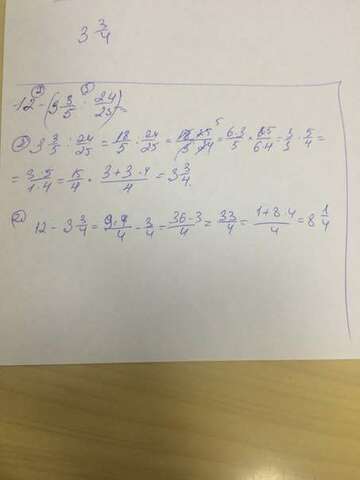 3 3/4
② ①
12 - (3 3/5 : 24/25) =
① 3 3/5 : 24/25 = 18/5 : 24/25 = 18·25/5·24 = 6·3/5 · 25/6·4 = 3/1 · 5/4 =
= 3·5/1·4 = 15/4 = 3+3·4/4 = 3 3/4
② 12 - 3 3/4 = 9·4/4 - 3/4 = 36-3/4 = 33/4 = 1+8·4/4 = 8 1/4